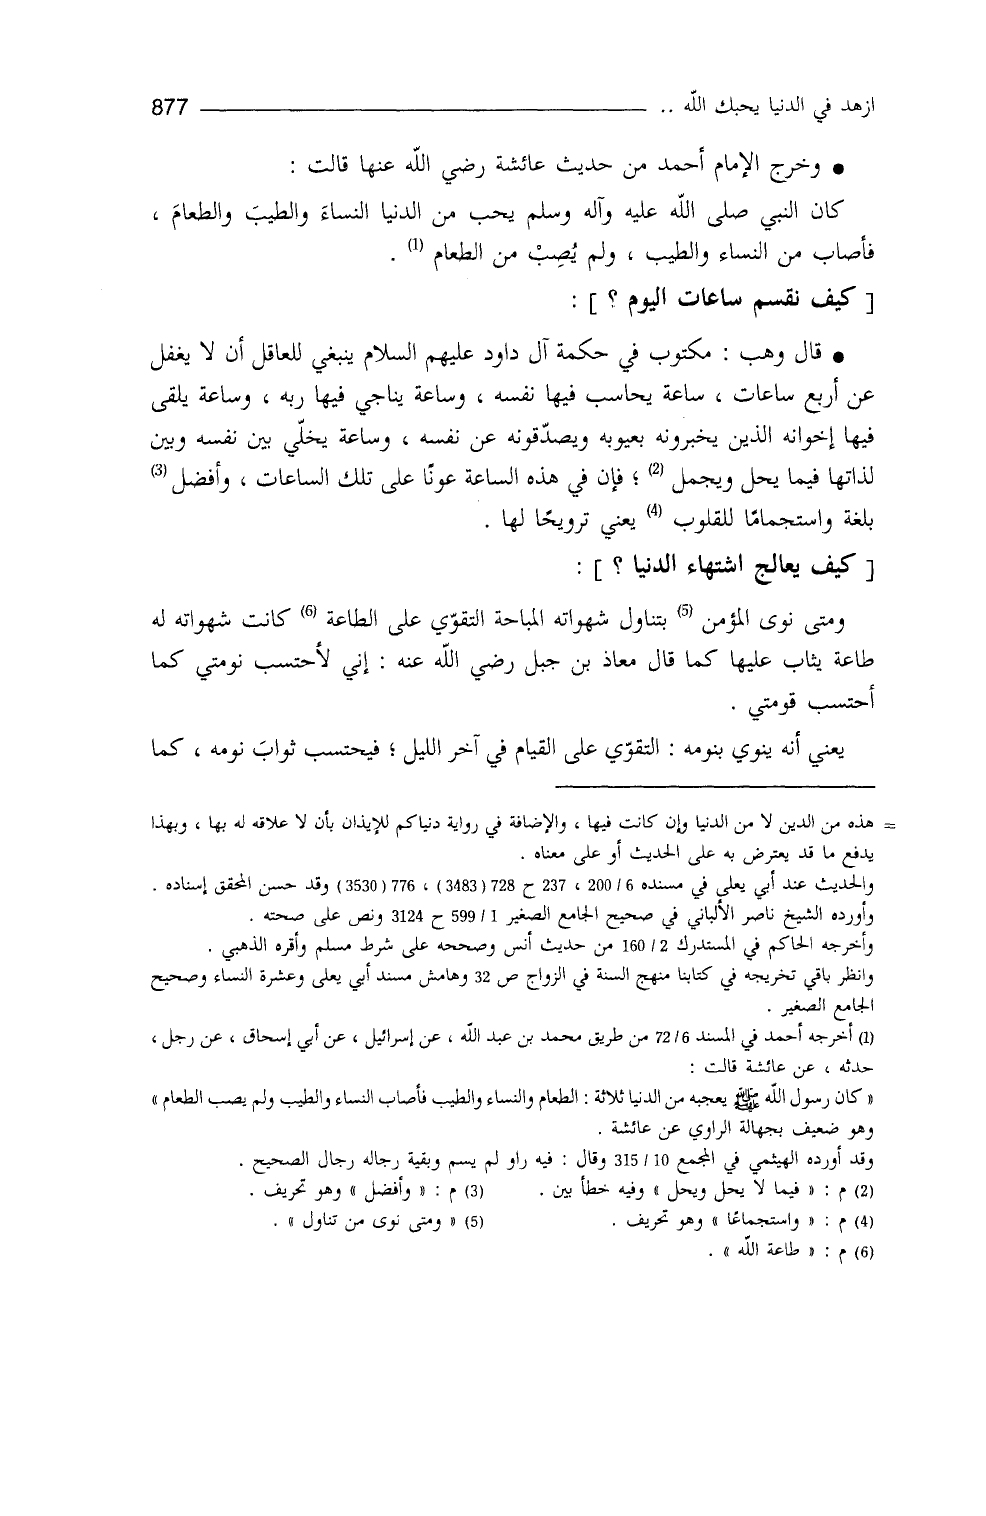 ازهد في الدنيا يحبك اللّه .. 877
● وخرج الإمام أحمد من حديث عائشة رضي اللّه عنها قالت :
كان النبي صلى اللّه عليه وآله وسلم يحب من الدنيا النساءَ والطيبَ والطعامَ ،
فأصاب من النساء والطيب ، ولم يُصِبْ من الطعام (1) .
[ كيف نقسم ساعات اليوم ؟ ] :
● قال وهب : مكتوب في حكمة آل داود عليهم السلام ينبغي للعاقل أن لا يغفل
عن أربع ساعات ، ساعة يحاسب فيها نفسه ، وساعة يناجي فيها ربه ، وساعة يلقى
فيها إخوانه الذين يخبرونه بعيوبه ويصدّقونه عن نفسه ، وساعة يخلّي بين نفسه وبين
لذاتها فيما يحل ويجمل (2) ؛ فإن في هذه الساعة عونًا على تلك الساعات ، وأفضل (3)
بلغة واستجمامًا للقلوب (4) يعني ترويحًا لها .
[ كيف يعالج اشتهاء الدنيا ؟ ] :
ومتى نوى المؤمن (5) بتناول شهواته المباحة التقوّي على الطاعة (6) كانت شهواته له
طاعة يثاب عليها كما قال معاذ بن جبل رضي اللّه عنه : إني لأحتسب نومتي كما
أحتسب قومتي .
يعني أنه ينوي بنومه : التقوّي على القيام في آخر الليل ؛ فيحتسب ثوابَ نومه ، كما
= هذه من الدين لا من الدنيا وإن كانت فيها ، والإضافة في رواية دنياكم للإيذان بأن لا علاقه له بها ، وبهذا
يدفع ما قد يعترض به على الحديث أو على معناه .
والحديث عند أبي يعلى في مسنده 6 / 200 ، 237 ح 728 ( 3483 ) ، 776 ( 3530 ) وقد حسن المحقق إسناده .
وأورده الشيخ ناصر الألباني في صحيح الجامع الصغير 1 / 599 ح 3124 ونص على صحته .
وأخرجه الحاكم في المستدرك 2 / 160 من حديث أنس وصححه على شرط مسلم وأقره الذهبي .
وانظر باقي تخريجه في كتابنا منهج السنة في الزواج ص 32 وهامش مسند أبي يعلى وعشرة النساء وصحيح
الجامع الصغير .
(1) أخرجه أحمد في المسند 6 / 72 من طريق محمد بن عبد اللّه ، عن إسرائيل ، عن أبي إسحاق ، عن رجل ،
حدثه ، عن عائشة قالت :
« كان رسول اللّه ﷺ يعجبه من الدنيا ثلاثة : الطعام والنساء والطيب فأصاب النساء والطيب ولم يصب الطعام »
وهو ضعيف بجهالة الراوي عن عائشة .
وقد أورده الهيثمي في المجمع 10 / 315 وقال : فيه راو لم يسم وبقية رجاله رجال الصحيح .
(2) م : « فيما لا يحل ويحل » وفيه خطأ بين . (3) م : « وأفضل » وهو تحريف .
(4) م : « واستجماعًا » وهو تحريف . (5) « ومتى نوى من تناول » .
(6) م : « طاعة اللّه » .